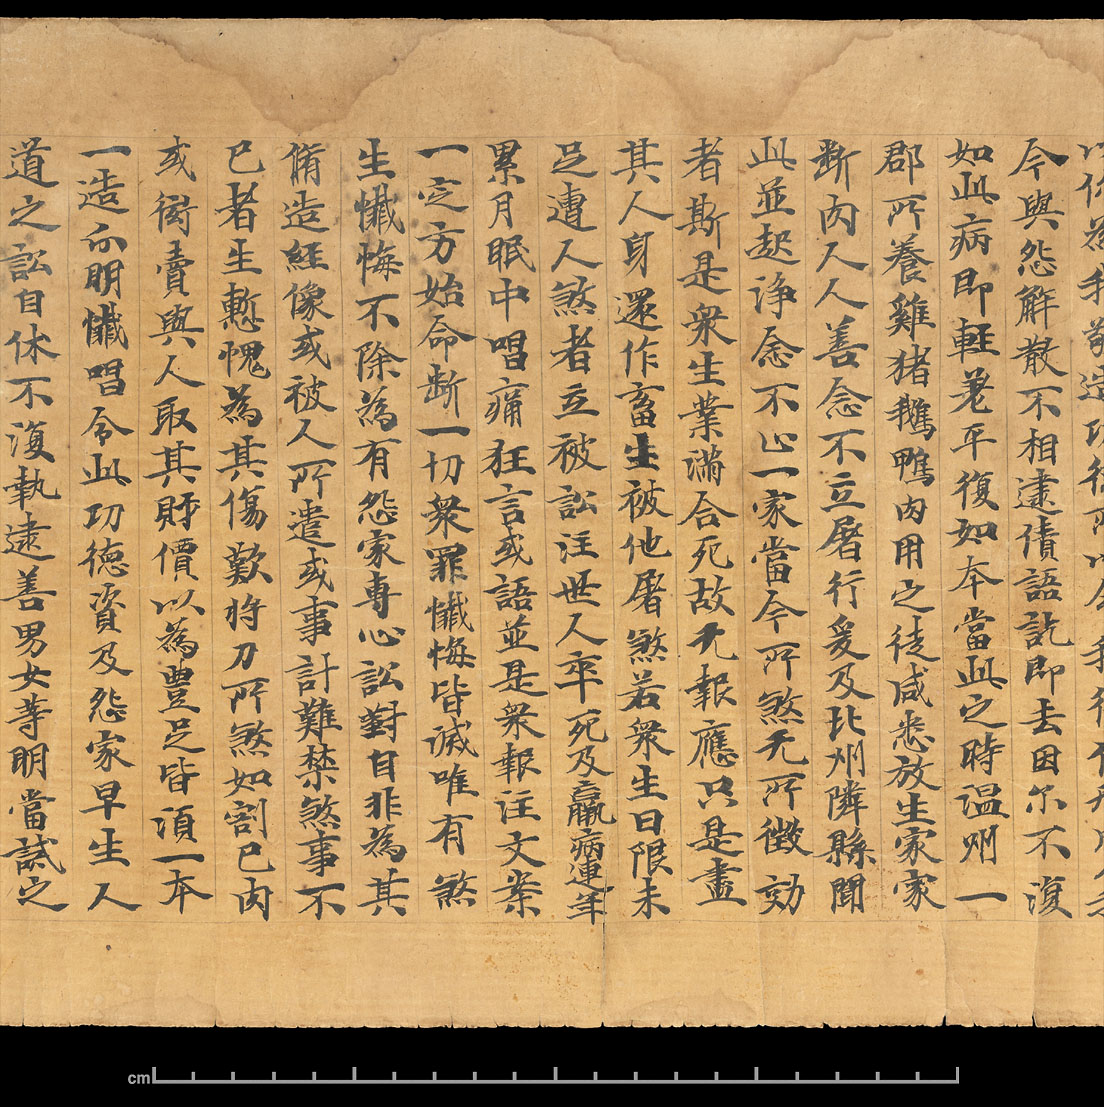 今與怨解散不相逮債語訖即去因尔不復
如此病即輕差平復如本當此之時温州一
郡所養雞猪鵝鴨肉用之徒咸悉放生家家
斷肉人人善念不立屠行爰及比州隣縣聞
此並起浄念不止一家當今所煞无所徵効
者斯是衆生業滿合死故无報應只是盡
其人身還作畜生被他屠煞若衆生日限未
足遭人煞者立被訟注世人卒死及羸病連年
累月眠中唱痛狂言或語並是衆報注文案
一定方始命斷一切衆罪懺悔皆滅唯有煞
生懺悔不除為有怨家專心訟對自非為其
脩造經像或被人所遣或事計難禁煞事不
已者生慙愧為其傷歎將刀所煞如割己肉
或衒賣與人取其財價以為豊足皆須一本
一造分明懺唱令此功德資及怨家早生人
道之訟自休不復執逮善男女等明當試之
cm